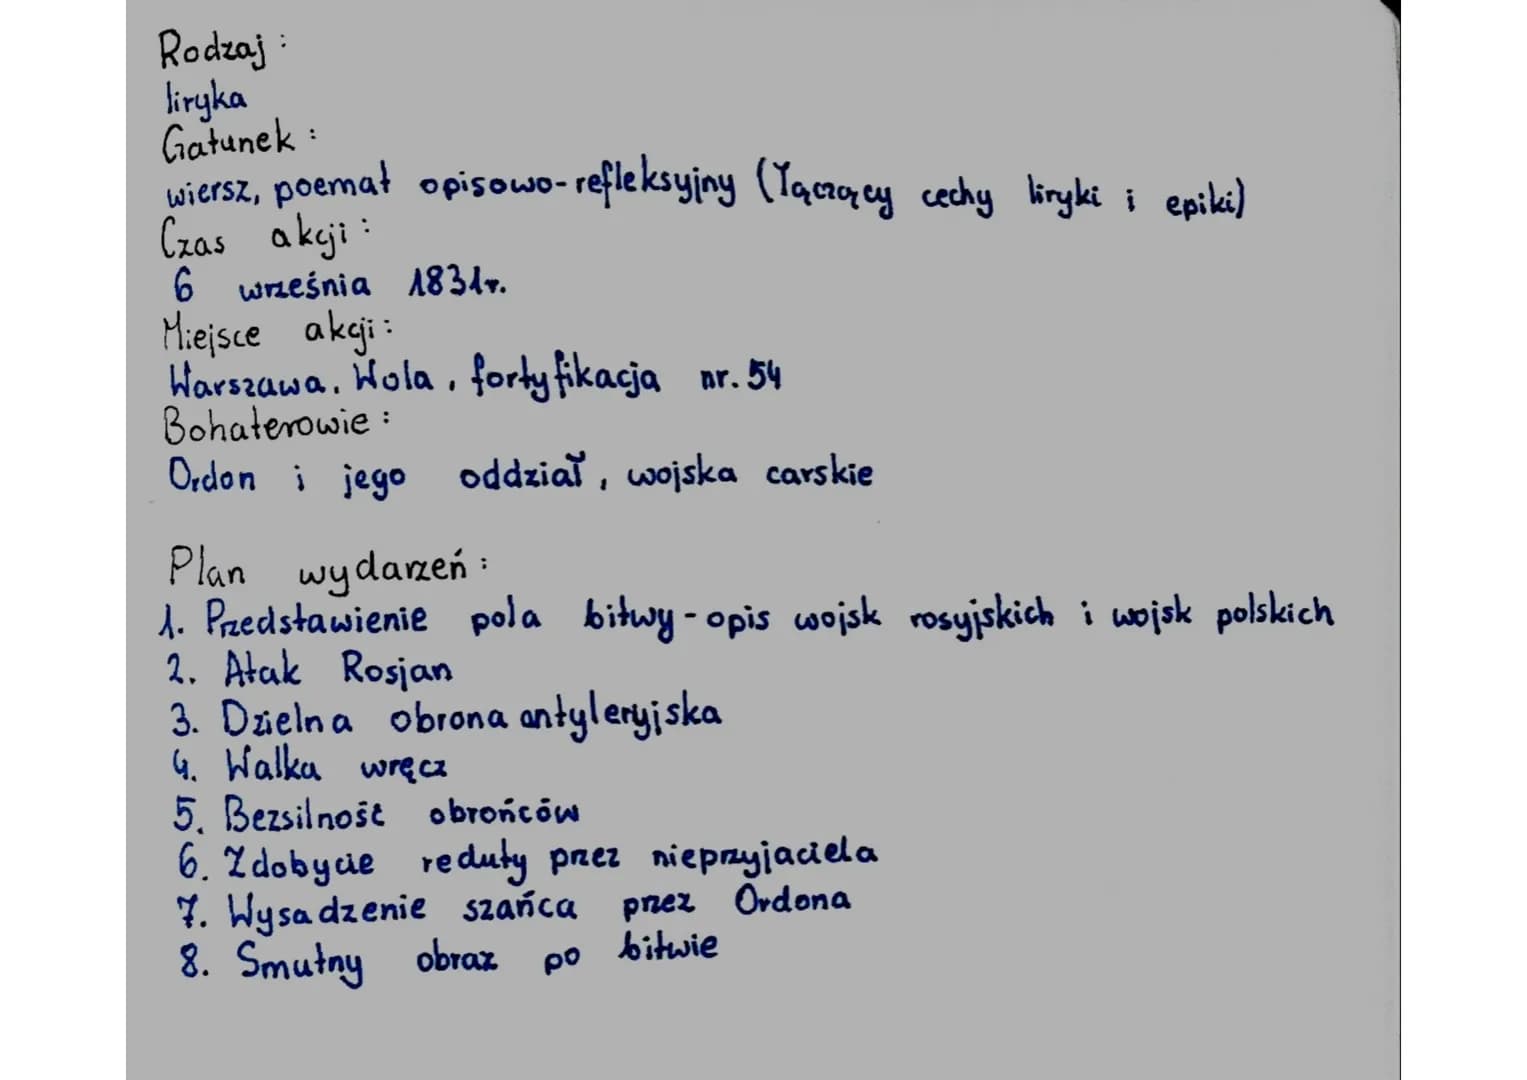 Rodzaj:
liryka
Gatunek:
wiersz, poemat opisowo-refleksyjny (łączący cechy liryki i epiki)
Czas akcji:
6 września 1831r.
Miejsce akcji:
Warszawa, Wola, fortyfikacja nr. 54
Bohaterowie:
Ordon i jego oddział, wojska carskie
Plan wydarzeń:
1. Przedstawienie pola bitwy - opis wojsk rosyjskich i wojsk polskich
2. Atak Rosjan
3. Dzielna obrona artyleryjska
4. Walka wręcz
5. Bezsilność obrońców
6. Zdobycie reduty przez nieprzyjaciela
7. Wysadzenie szańca przez Ordona
8. Smutny obraz po bitwie